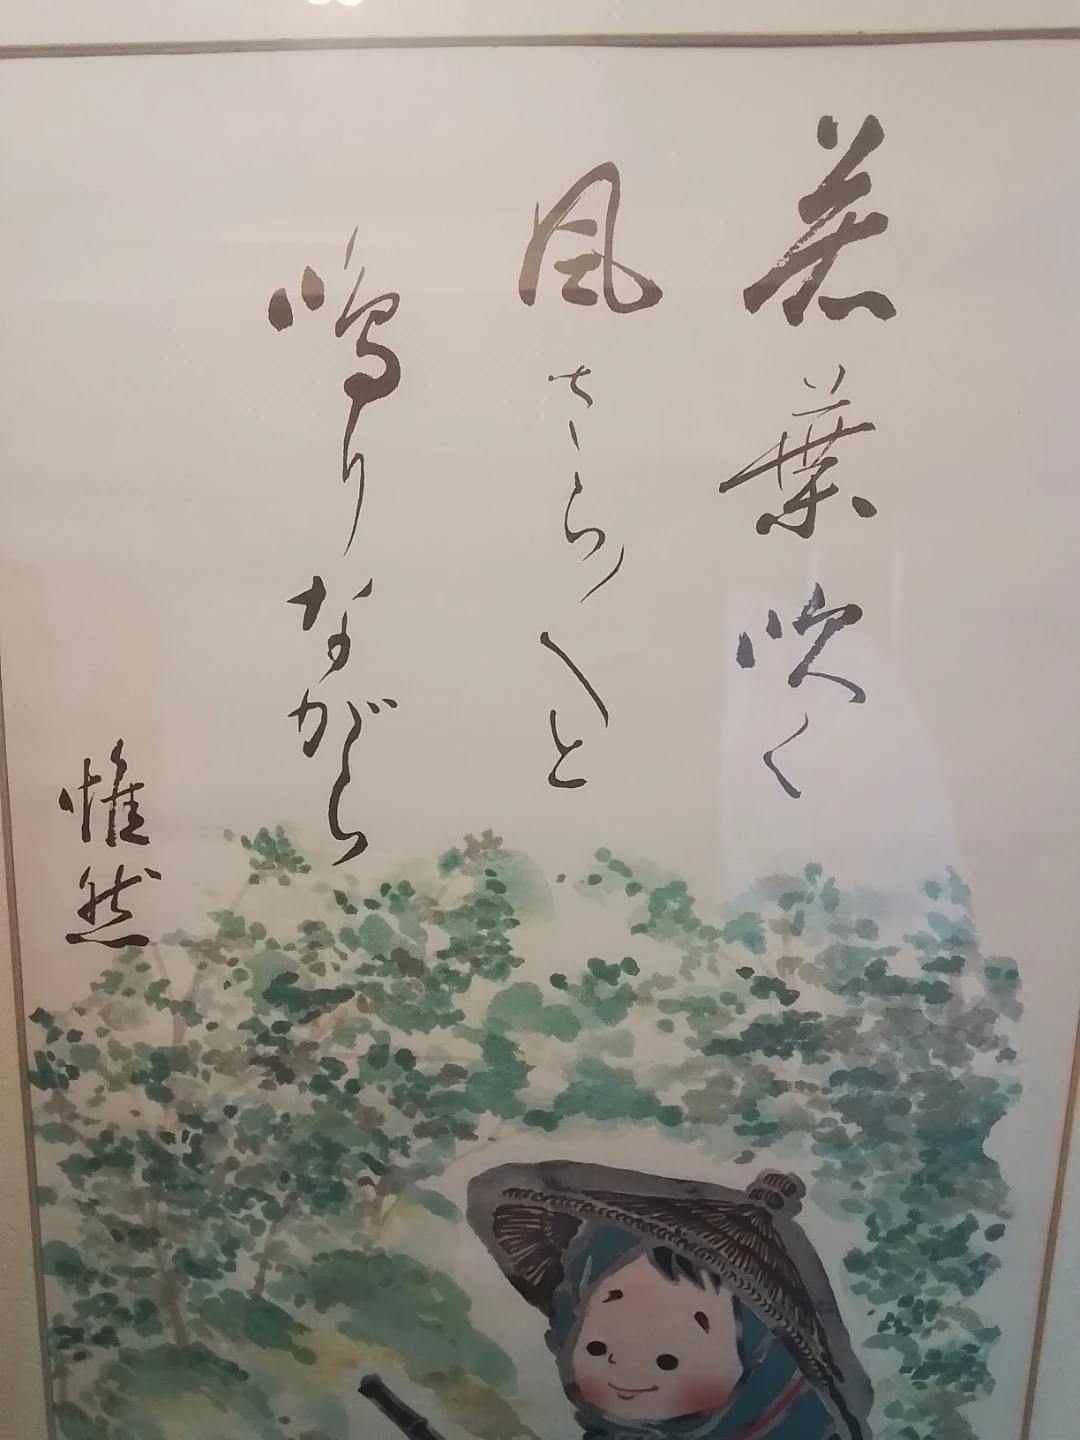 若葉吹く
風さら〳〵と
鳴りながら
惟然